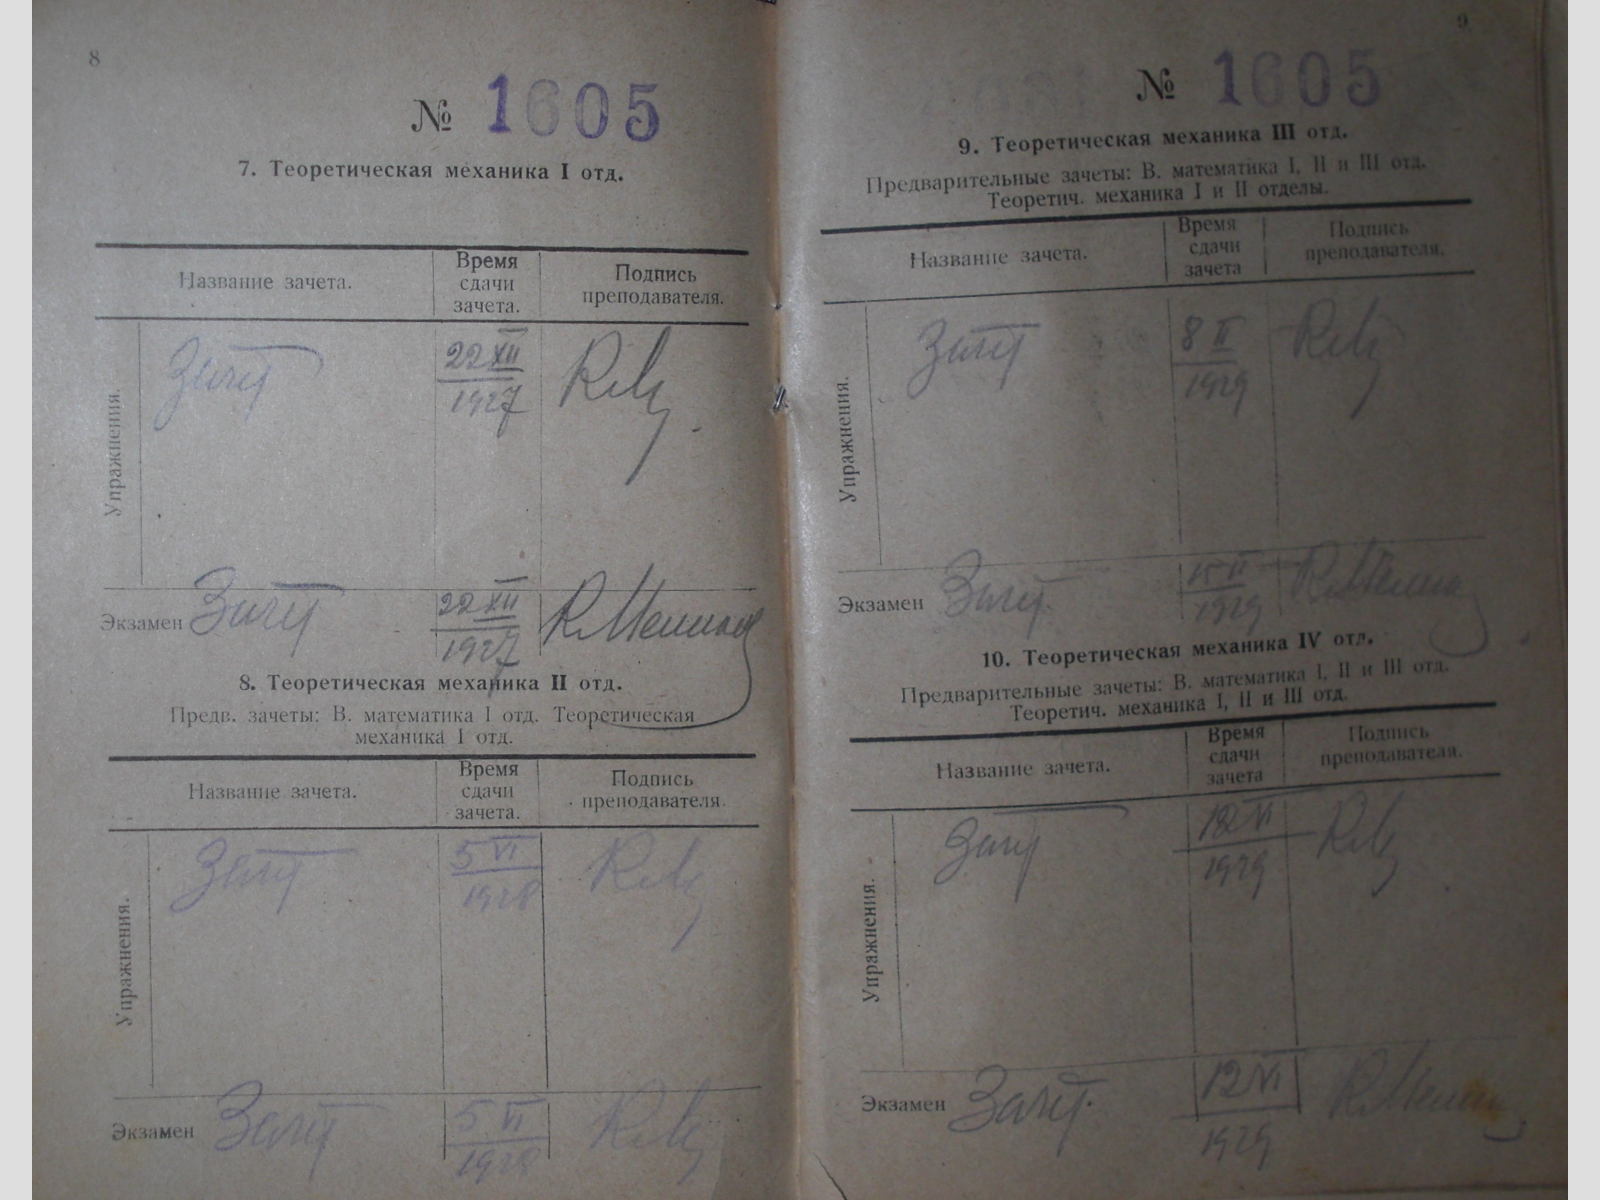 8
№ 1605
7. Теоретическая механика I отд.
Название зачета.
Время сдачи зачета.
Подпись преподавателя.
Упражнения.
Зачет
22 XII 1927
Экзамен
Зачет
22 XII 1927
8. Теоретическая механика II отд.
Предв. зачеты: В. математика I отд. Теоретическая
механика I отд.
Название зачета.
Время сдачи зачета.
Подпись преподавателя.
Упражнения.
Зачет
5 VI 1928
Экзамен
Зачет
5 VI 1928
9
№ 1605
9. Теоретическая механика III отд.
Предварительные зачеты: В. математика I, II и III отд.
Теоретич. механика I и II отделы.
Название зачета.
Время сдачи зачета
Подпись преподавателя.
Упражнения.
Зачет
8 II 1929
Экзамен
Зачет
II 1929
10. Теоретическая механика IV отд.
Предварительные зачеты: В. математика I, II и III отд.
Теоретич. механика I, II и III отд.
Название зачета.
Время сдачи зачета
Подпись преподавателя.
Упражнения.
Зачет
12 VI 1929
Экзамен
Зачет
12 VI 1929